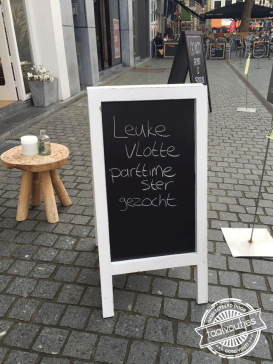 Leuke
vlotte
parttime
ster
gezocht
Taalvoutjes